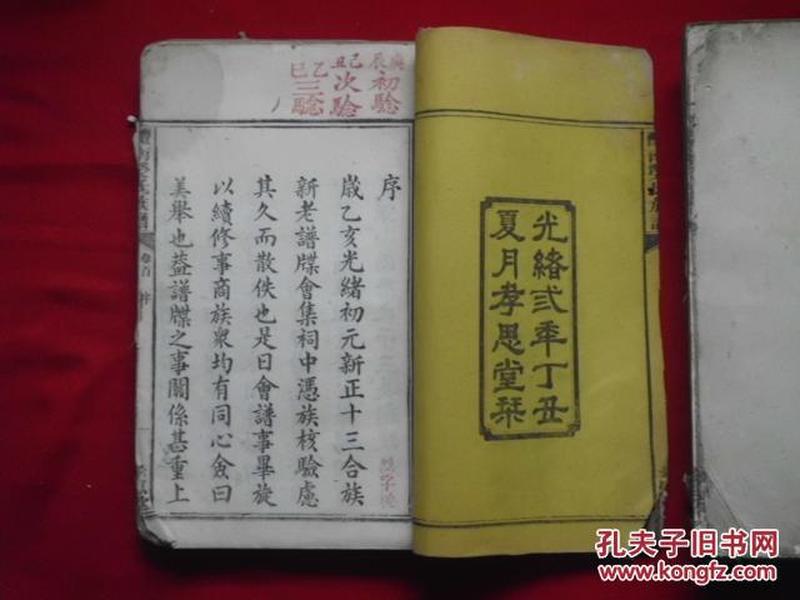 光緒弎秊丁丑
夏月孝思堂栞
庚辰初驗
己丑次驗
乙巳三驗
序
歲乙亥光緒初元新正十三合族
新老譜牒會集祠中憑族核驗慮
其久而散佚也是日會譜事畢旋
以續修事商族衆均有同心僉曰
美舉也葢譜牒之事關係甚重上
氏族譜
卷首
序
孔夫子旧书网
www.kongfz.com